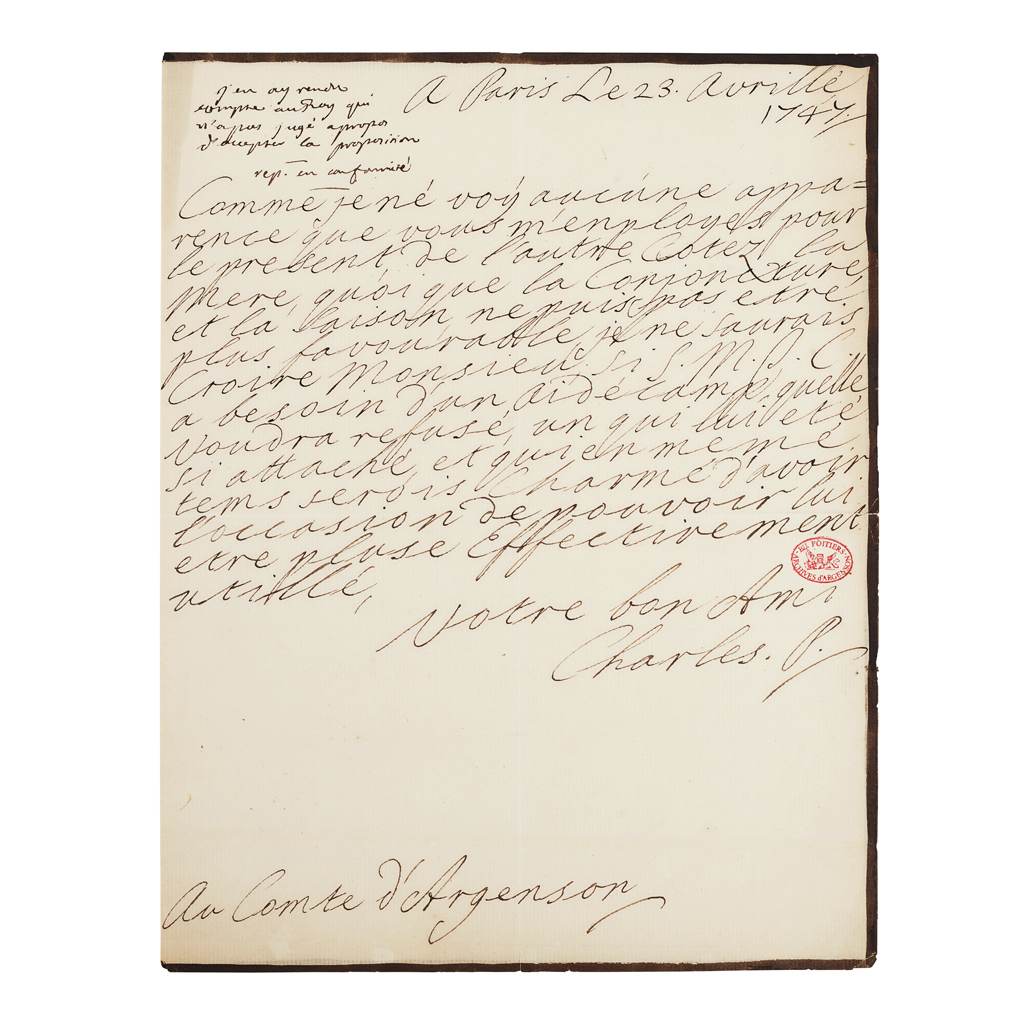 j'en ay rendu
compte au Roy qui
n'a pas jugé apropos
d'accepter la proposition
rep. en conformité
A Paris Le 23. Avrille,
1747.
Commē je né voy aucúne appa=
rence que vous m'employés pour
le present de l'autre Cotez la
Mere, quóique la Conjoncture,
et la Saison ne puis pas etre
plus favourable, je ne saurais
Croire Monsieur si S. M. T. C
a besoin d'un Aidécamp, quelle
voudra refusé, un qui lui eté
si attaché, et qui en memé
tems serois Charmé d'avoir
l'occasion de pouvoir lui
etre pluse Effectivement
utillé,
Votre bon Ami
Charles. P.
BU. POITIERS-NOISY
ARCHIVES d'ARGENSON
Au Comte d'Argenson